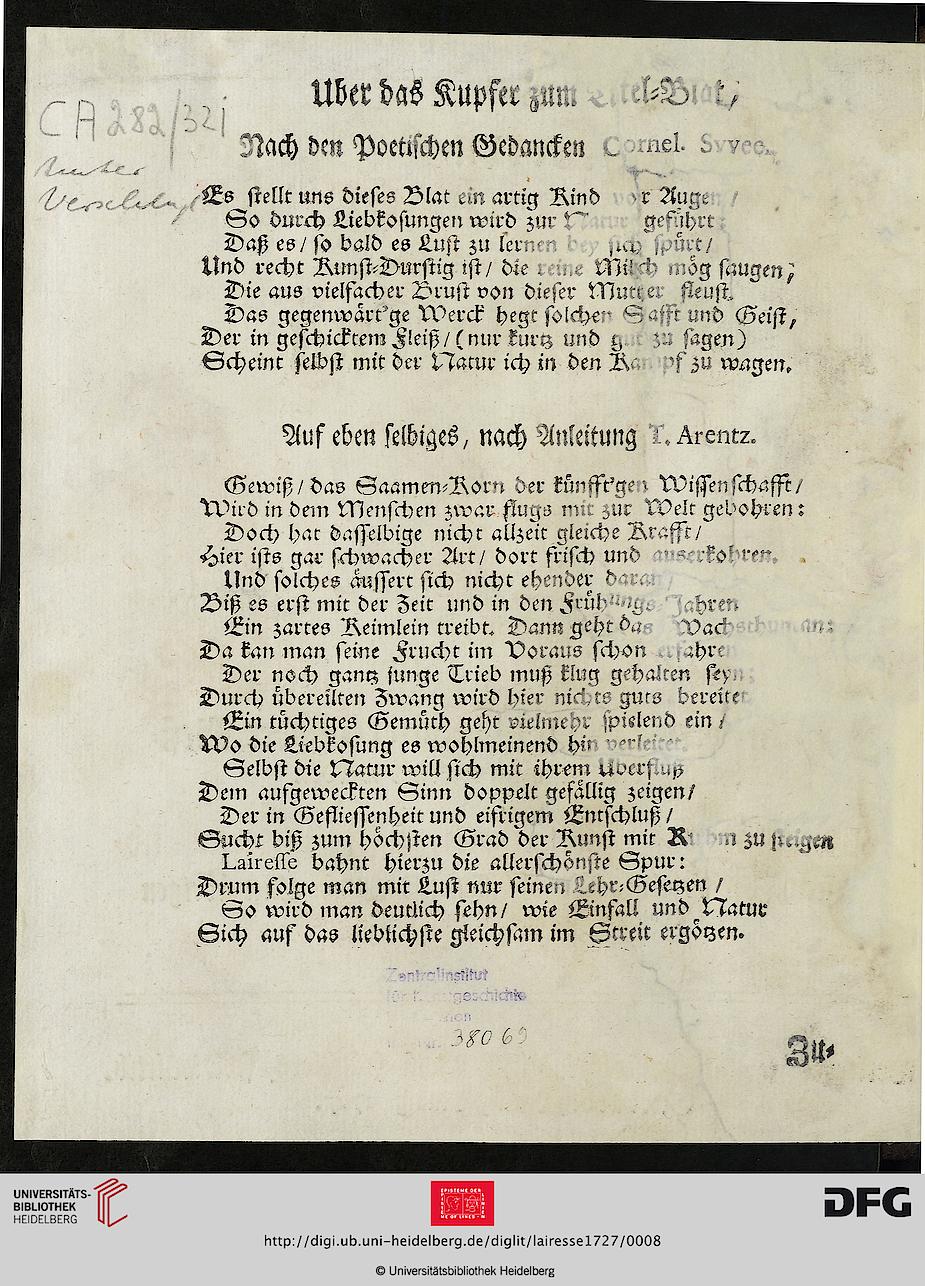 Uber das Kupfer zum Titel-Blat,
CA 282/321
Nach den Poetischen Gedancken Cornel. Svvee.
Es stellt uns dieses Blat ein artig Kind vor Augen /
So durch Liebkosungen wird zur Natur geführt:
Daß es / so bald es Lust zu lernen bey sich spürt /
Und recht Kunst-Durstig ist / die reine Milch mög saugen,
Die aus vielfacher Brust von dieser Mutter fleust.
Das gegenwärt'ge Werck hegt solchen Safft und Geist,
Der in geschicktem Fleiß / (nur kurtz und gut zu sagen)
Scheint selbst mit der Natur ich in den Kampf zu wagen.
Auf eben selbiges, nach Anleitung T. Arentz.
Gewiß / das Saamen-Korn der künfft'gen Wissenschafft /
Wird in dem Menschen zwar flugs mit zur Welt gebohren:
Doch hat dasselbige nicht allzeit gleiche Krafft /
Hier ists gar schwacher Art / dort frisch und auserkohren.
Und solches äussert sich nicht ehender daran /
Biß es erst mit der Zeit und in den Frühlings-Jahren
Ein zartes Keimlein treibt. Dann geht das Wachsthum an:
Da kan man seine Frucht im Voraus schon erfahre
Der noch gantz junge Trieb muß klug gehalten seyn:
Durch übereilten Zwang wird hier nichts guts bereitet
Ein tüchtiges Gemüth geht vielmehr spielend ein /
Wo die Liebkosung es wohlmeinend hin verleitet.
Selbst die Natur will sich mit ihrem Uberfluß
Dem aufgeweckten Sinn doppelt gefällig zeigen /
Der in Gefliessenheit und eifrigem Entschluß /
Sucht biß zum höchsten Grad der Kunst mit Ruhm zu steigen
Lairesse bahnt hierzu die allerschönste Spur:
Drum folge man mit Lust nur seinen Lehr-Gesetzen /
So wird man deutlich sehn / wie Einfall und Natur
Sich auf das lieblichste gleichsam im Streit ergötzen.
Zentralinstitut
für Kunstgeschichte
38069
Zu-
UNIVERSITÄTS-
BIBLIOTHEK
HEIDELBERG
DFG
http://digi.ub.uni-heidelberg.de/diglit/lairesse1727/0008
© Universitätsbibliothek Heidelberg